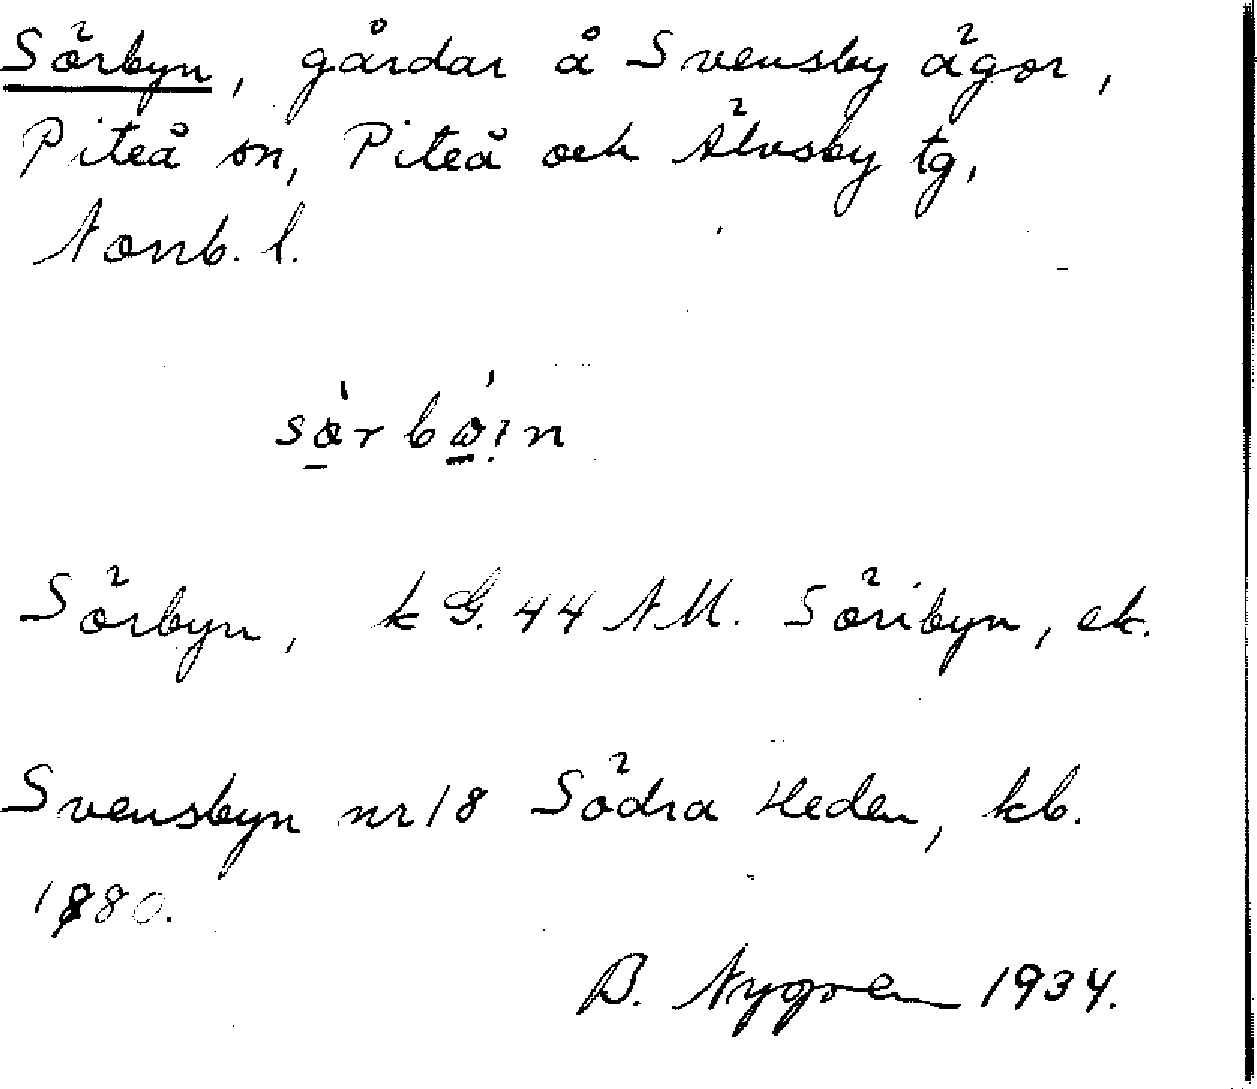 Sörbyn, gårdar å Svensby ägor,
Piteå sn, Piteå och Älvsby tg,
Norrb. l.
Sörbyn, k G. 44 NM. Söribyn, ek.
Svensbyn nr 18 Södra Heden, kb.
1880.
B. Nygren 1934.